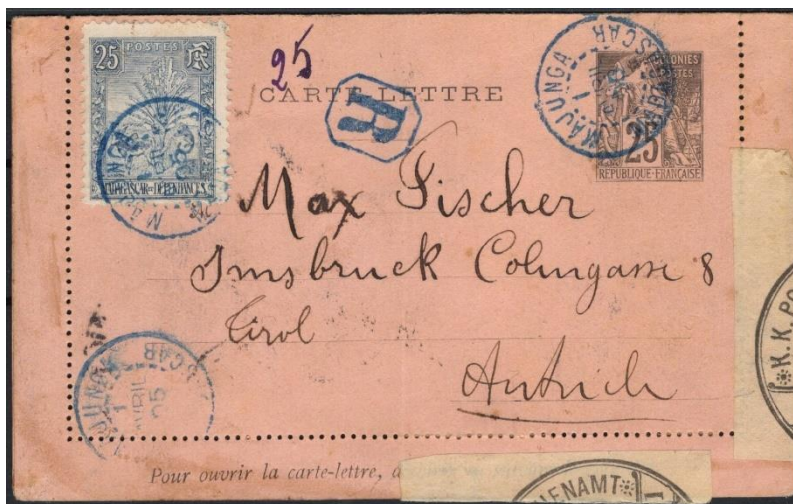 25 POSTES RF
MADAGASCAR ET DÉPENDANCES
25
R
CARTE LETTRE
MAJUNGA
MADAGASCAR
COLONIES
POSTES
25
REPUBLIQUE-FRANÇAISE
Max Fischer
Innsbruck Colingasse 8
Tirol
Autriche
K.K. PO
Pour ouvrir la carte-lettre,
ENAMT